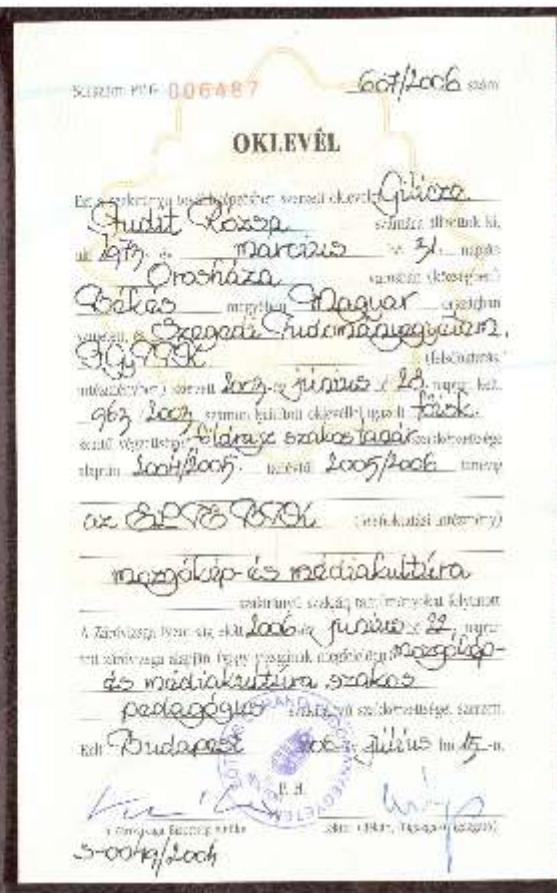 Sorszám PT/G 006487 607/2006 szám
OKLEVÉL
Ezt a szakirányú továbbképzésben szerzett oklevelet Gilicze
Judit Rózsa számára állították ki,
aki 1973 év március hó 31. napján
Orosháza városban (községben)
Békés megyében Magyar országban
született, és Szegedi Tudományegyetem,
JGyTFK (felsőoktatási
intézményben) szerzett 2003 év június hó 23. napján kelt,
963/2003 számon kiállított oklevéllel igazolt főisk.
szintű végzettség földrajz szakos tanár szakképzettsége
alapján 2004/2005 tanévtől 2005/2006 tanévig
az ELTE BTK (felsőoktatási intézmény)
mozgókép- és médiakultúra
szakirányú szakán tanulmányokat folytatott.
A Záróvizsga Bizottság előtt 2006 év június hó 22. napján
tett záróvizsga alapján mozgókép-
és médiakultúra szakos
pedagógus szakirányú szakképzettséget szerzett.
Kelt Budapest 2006 év július hó 15-n.
P. H.
a Záróvizsga Bizottság elnöke
S-0049/2004